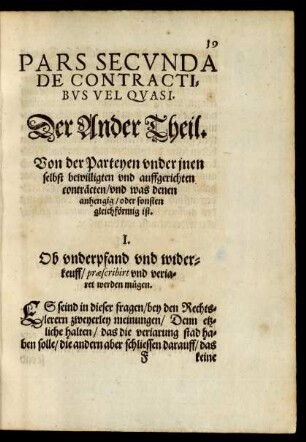 19
PARS SECVNDA
DE CONTRACTI,
BVS VEL QVASI.
Der Ander Theil.
Von der Parteyen vnder jnen
selbst bewilligten vnd auffgerichten
contrácten/vnd was denen
anhengig/oder sonsten
gleichförmig ist.
I.
Ob vnderpfand vnd wider-
keuff/præscribirt vnd veria-
ret werden mügen.
ES seind in dieser fragen/bey den Rechts-
lerern zweyerley meinungen/ Denn etz-
liche halten/ das die verlarung stad ha-
ben solle/die andern aber schliessen darauff/das
F keine